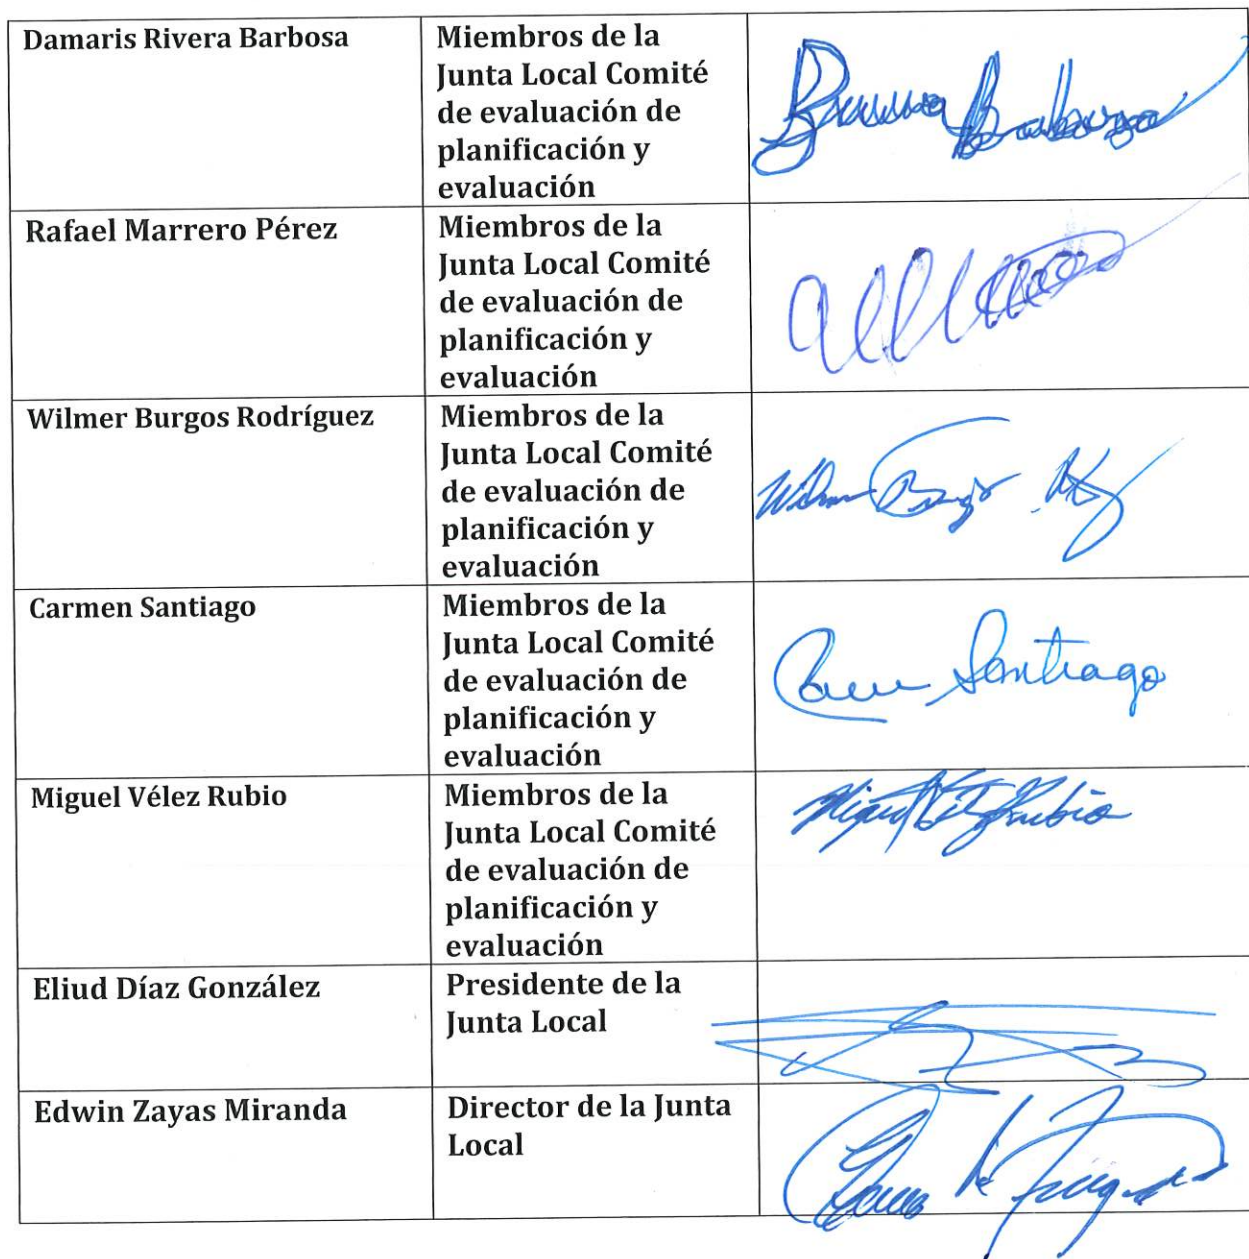 Damaris Rivera Barbosa
Miembros de la
Junta Local Comité
de evaluación de
planificación y
evaluación
Rafael Marrero Pérez
Miembros de la
Junta Local Comité
de evaluación de
planificación y
evaluación
Wilmer Burgos Rodríguez
Miembros de la
Junta Local Comité
de evaluación de
planificación y
evaluación
Carmen Santiago
Miembros de la
Junta Local Comité
de evaluación de
planificación y
evaluación
Carmen Santiago
Miguel Vélez Rubio
Miembros de la
Junta Local Comité
de evaluación de
planificación y
evaluación
Eliud Díaz González
Presidente de la
Junta Local
Edwin Zayas Miranda
Director de la Junta
Local